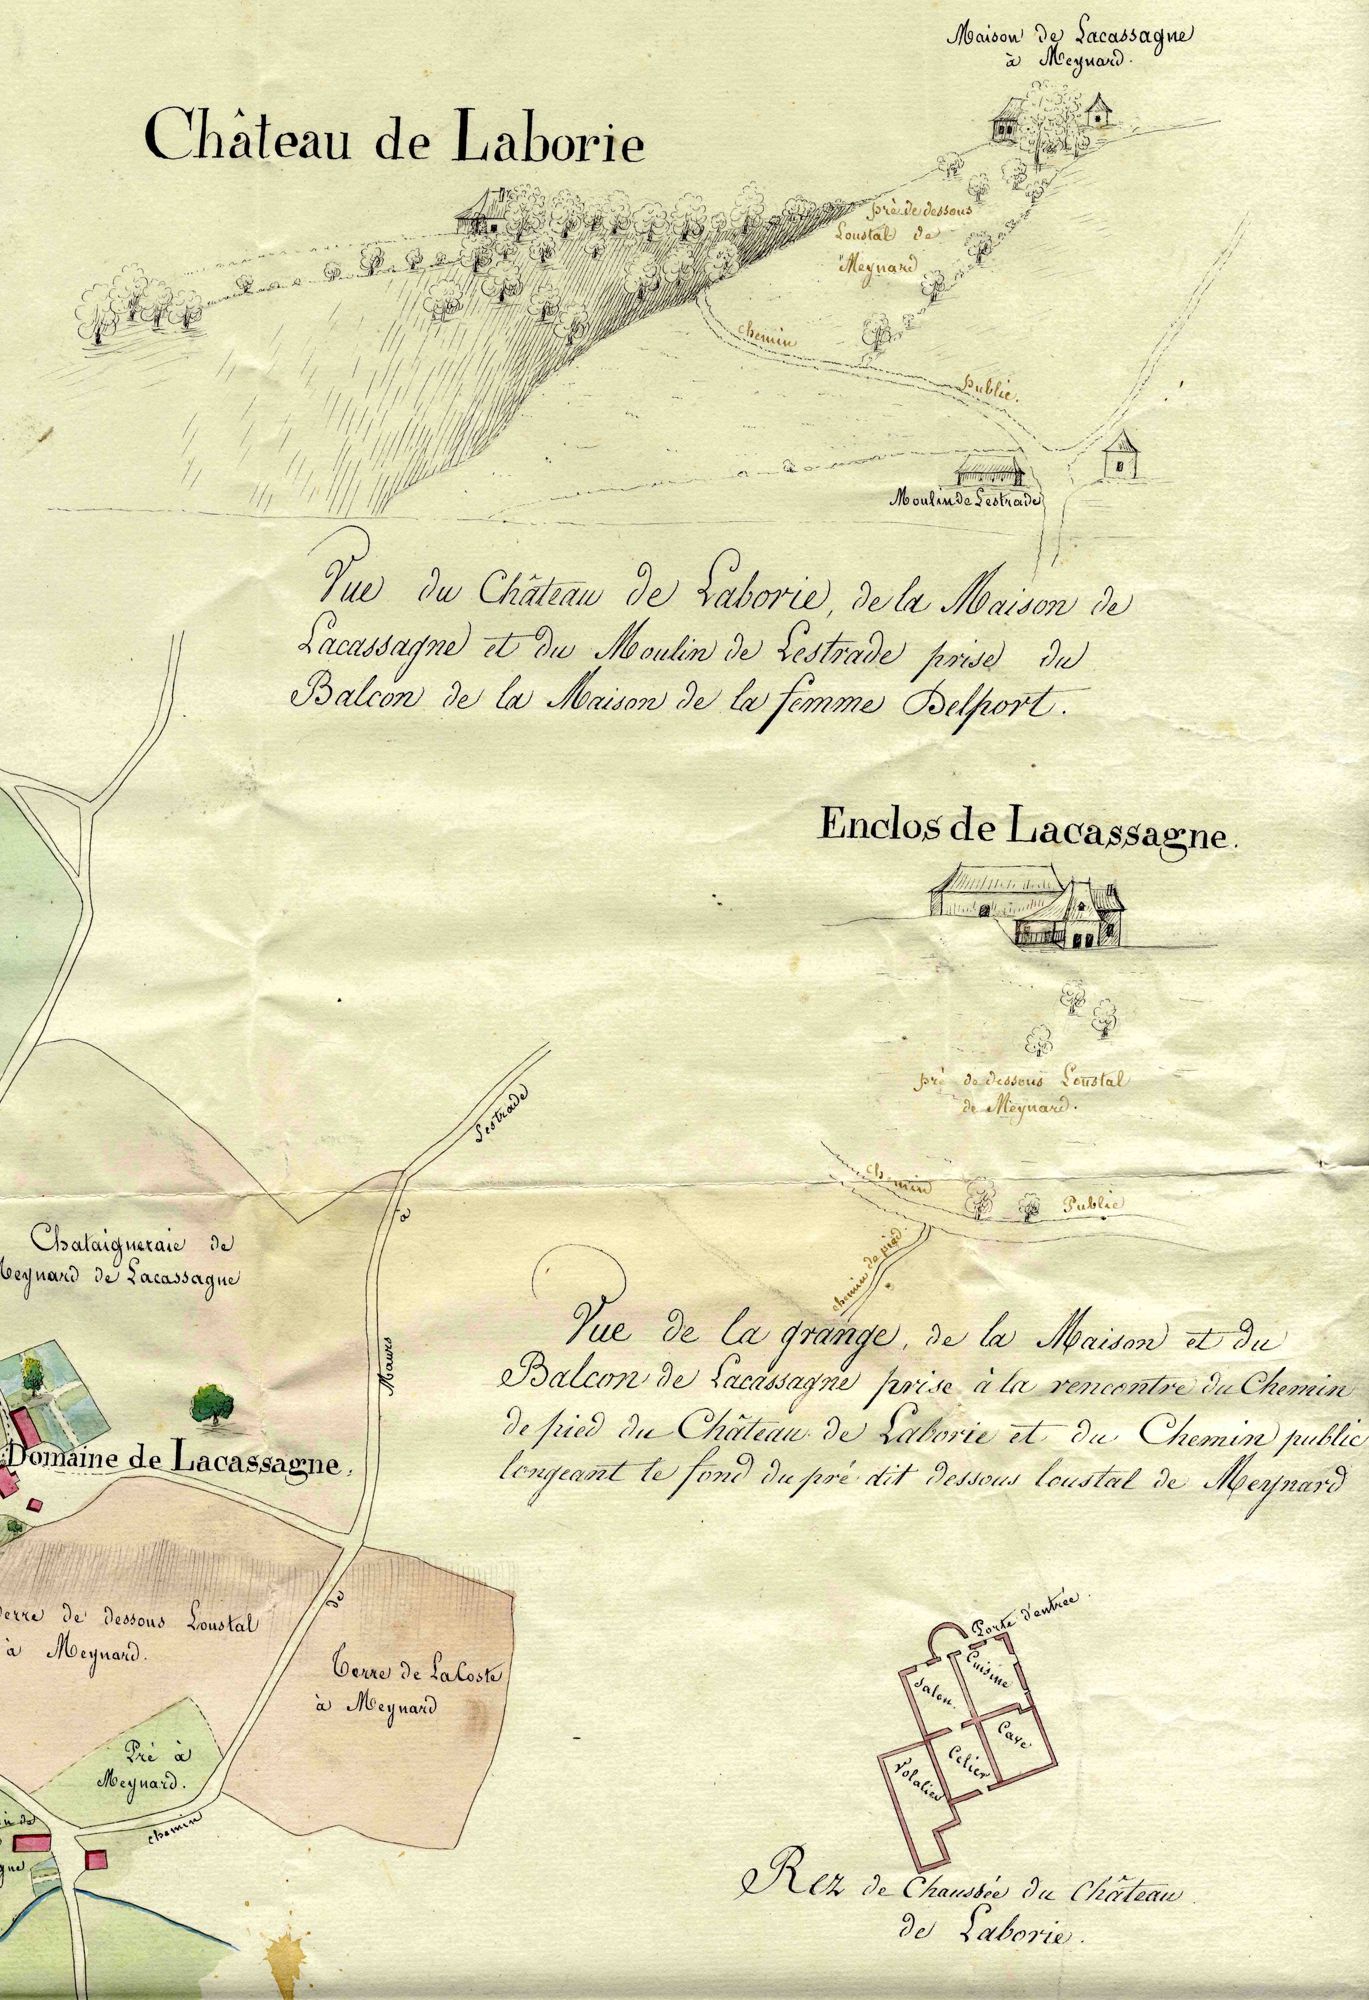 Maison de Lacassagne
à Meynard.
Château de Laborie
pré de dessous
Loustal de
Meynard
chemin
Public.
Moulin de Lestrade
Vue du Château de Laborie, de la Maison de
Lacassagne et du Moulin de Lestrade prise du
Balcon de la Maison de la femme Delport.
Enclos de Lacassagne.
pré de dessous Loustal
de Meynard.
Lestrade
à
Maurs
de
chemin
chemin
Public
chemin de pied
Chataigneraie de
Meynard de Lacassagne
Vue de la grange, de la Maison et du
Balcon de Lacassagne prise à la rencontre du Chemin
de pied du Château de Laborie et du Chemin public
longeant le fond du pré dit dessous loustal de Meynard
Domaine de Lacassagne.
terre de dessous Loustal
à Meynard.
Terre de LaCoste
à Meynard
Pré à
Meynard.
Porte d'entrée.
Cuisine
Salon.
Cave
Celier
Volalier
Rez de Chaussée du Château
de Laborie.